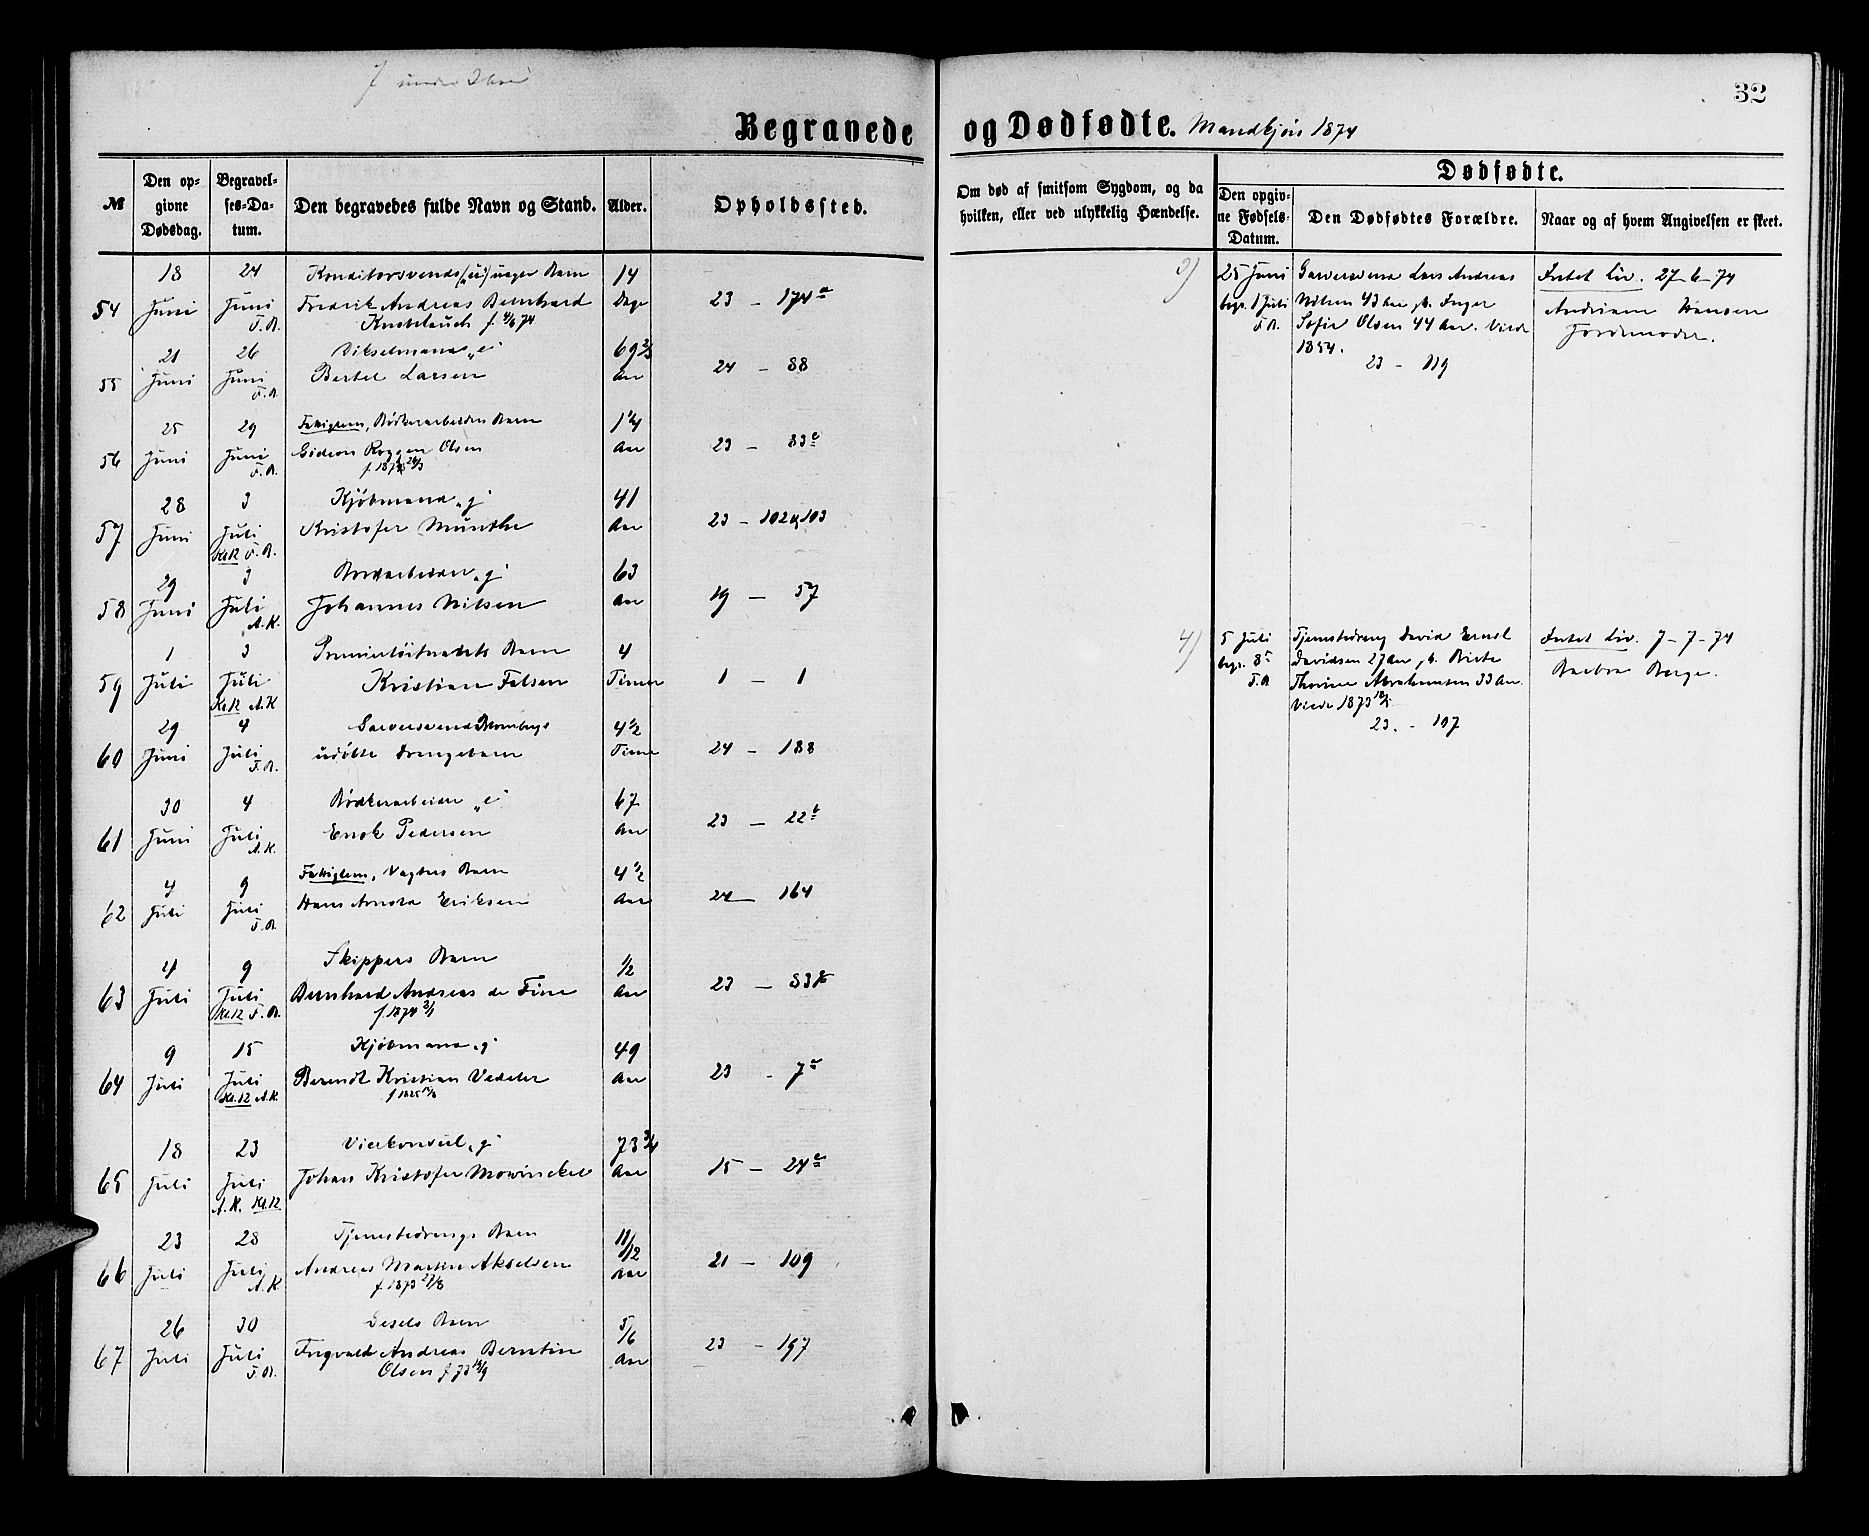 7 under
32
Begravede og Dødfødte. Mandkjøn 1874
№
Den opgivne Dødsdag.
Begravelses-Datum.
Den begravedes fulde Navn og Stand.
Alder.
Opholdssted.
Om død af smitsom Sygdom, og da hvilken, eller ved ulykkelig Hændelse.
Dødfødte.
Den opgivne Fødsels-Datum.
Den Dødfødtes Forældre.
Naar og af hvem Angivelsen er skeet.
54 18 Juni 24 Juni F.B. Konditorsvends (u) uægte Barn 14 Dage 23 - 174a
Fredrik Andreas Bernhard
Knoblauch f. 4/6 74
55 21 Juni 26 Juni F.B. "e" 69 2/3 Aar 24 - 88
Bertel Larsen
56 25 Juni 29 Juni F.B. Fattiglem, Bødkerarbeiders Barn 1 1/4 Aar 23 - 83c
Gideon Roggen Olsen
57 28 Juni 3 Juli Kl.12 F.B. Kjøbmand "g" 41 Aar 23 - 102 & 103
Kristofer Munthe
58 29 Juni 3 Juli A.K. "g" 63 Aar 19 - 57
Johannes Nilsen
59 1 Juli 3 Juli Kl.12 A.K. Premierløitnants Barn 4 Timer 1 - 1
Kristian Felsen
60 29 Juni 4 Juli F.B. Garversvend Brombergs 4 1/2 Timer 24 - 188
udøbte Drengebarn
61 30 Juni 4 Juli A.K. Bødkerarbeider "e" 67 Aar 23 - 22b
Enok Pedersen
62 4 Juli 9 Juli F.B. Fattiglem, Vægters Barn 4 1/2 Aar 24 - 164
Hans Arnold Eriksen
63 4 Juli 9 Juli Kl.12 F.B. Skippers Barn 1/2 Aar 23 - 83
Bernhard Andreas de Fine
f. 1874 3/1
64 9 Juli 15 Juli Kl.12 A.K. Kjøbmand "g" 49 Aar 23 - 7a
Berendt Kristian Vedeler
65 18 Juli 23 Juli A.K. Kl.12 Vicekonsul "g" 73 3/4 Aar 15 - 24c
Johan Kristofer Mowinckel
66 23 Juli 28 Juli A.K. Tjenestedrengs Barn 11/12 Aar 21 - 109
Andreas Martin Akselsen
f. 1873 27/8
67 26 Juli 30 Juli F.B. Barn 5/6 Aar 23 - 197
Ingvald Andreas Berntin
Olsen f. 73
3) 25 Juni begr. 1 Juli F.B.
Garversvend Lars Andreas
Nilsen 43 Aar, & Inger
Sofie Olsen 44 Aar. Viede
1854.
23 - 119
Intet Liv. 27-6-74
Andriane Hansen
Jordmoder.
4) 5 Juli begr. 8de F.B.
Tjenestedreng David Ernst
Davidsen 27 Aar & Birte
Thorine Abrahamsen 33 Aar.
Viede 1873
23. - 107
Intet Liv. 7-7-74
Barbra Berge.